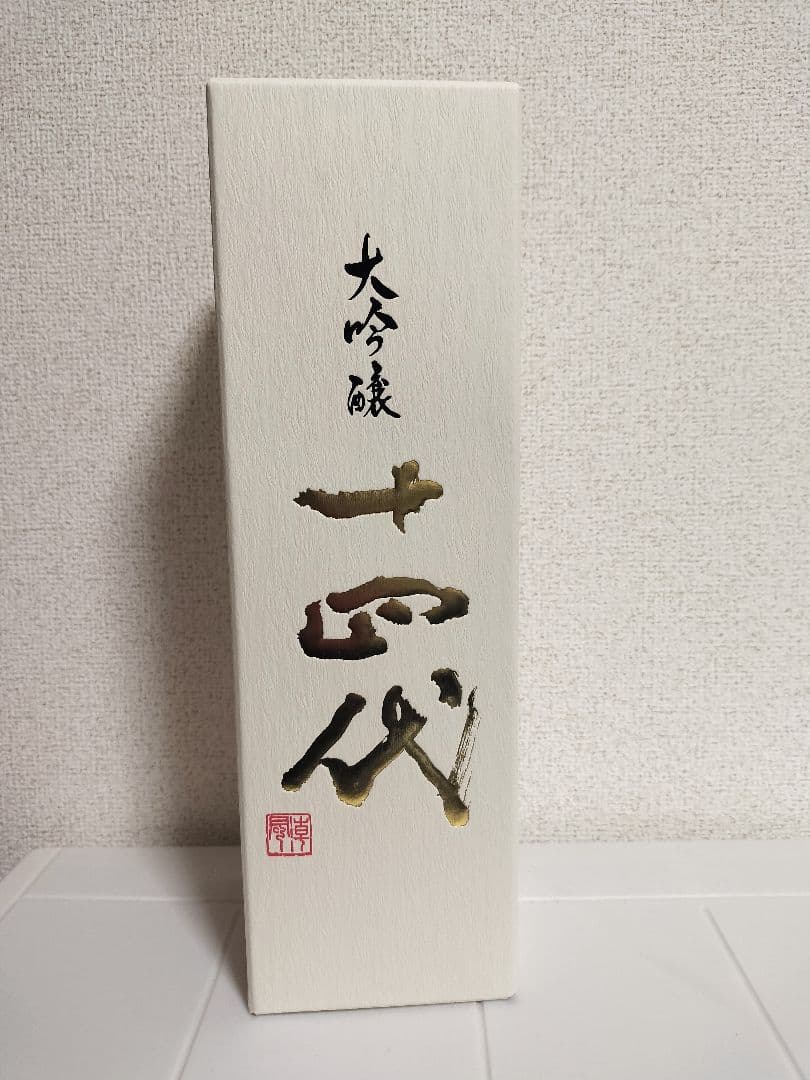 大吟醸
十四代